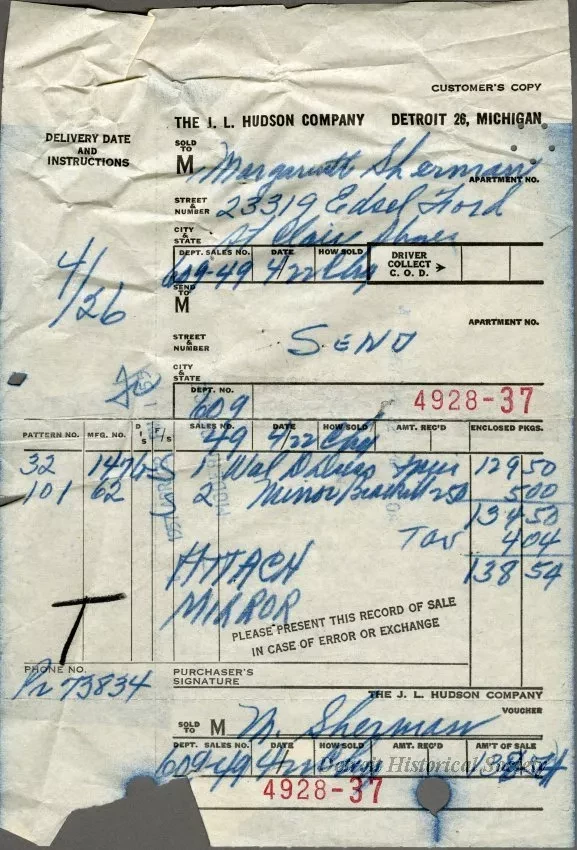 CUSTOMER'S COPY
THE J. L. HUDSON COMPANY DETROIT 26, MICHIGAN
DELIVERY DATE AND INSTRUCTIONS
SOLD TO M Margaret Sherman
APARTMENT NO.
STREET & NUMBER 23319 Edsel Ford
CITY & STATE St Claire Shores
DEPT. SALES NO. DATE HOW SOLD DRIVER COLLECT C. O. D.
609-49 4/22 Chg
4/26
SEND TO M
APARTMENT NO.
STREET & NUMBER SEND
CITY & STATE
DEPT. NO.
609 4928-37
PATTERN NO. MFG. NO. DIS F/S SALES NO. DATE HOW SOLD AMT. REC'D ENCLOSED PKGS.
49 4/22 Chg
32 1 Wal 129 50
101 62 2 Mirror 2 50 5 00
134 50
Tax 4 04
138 54
ATTACH
MIRROR
PLEASE PRESENT THIS RECORD OF SALE
IN CASE OF ERROR OR EXCHANGE
PHONE NO. PURCHASER'S SIGNATURE
Pr 73834
THE J. L. HUDSON COMPANY
VOUCHER
SOLD TO M M. Sherman
DEPT. SALES NO. DATE HOW SOLD AMT. REC'D AM'T OF SALE
609-49 4/22 Chg 138 54
Detroit Historical Society
4928-37